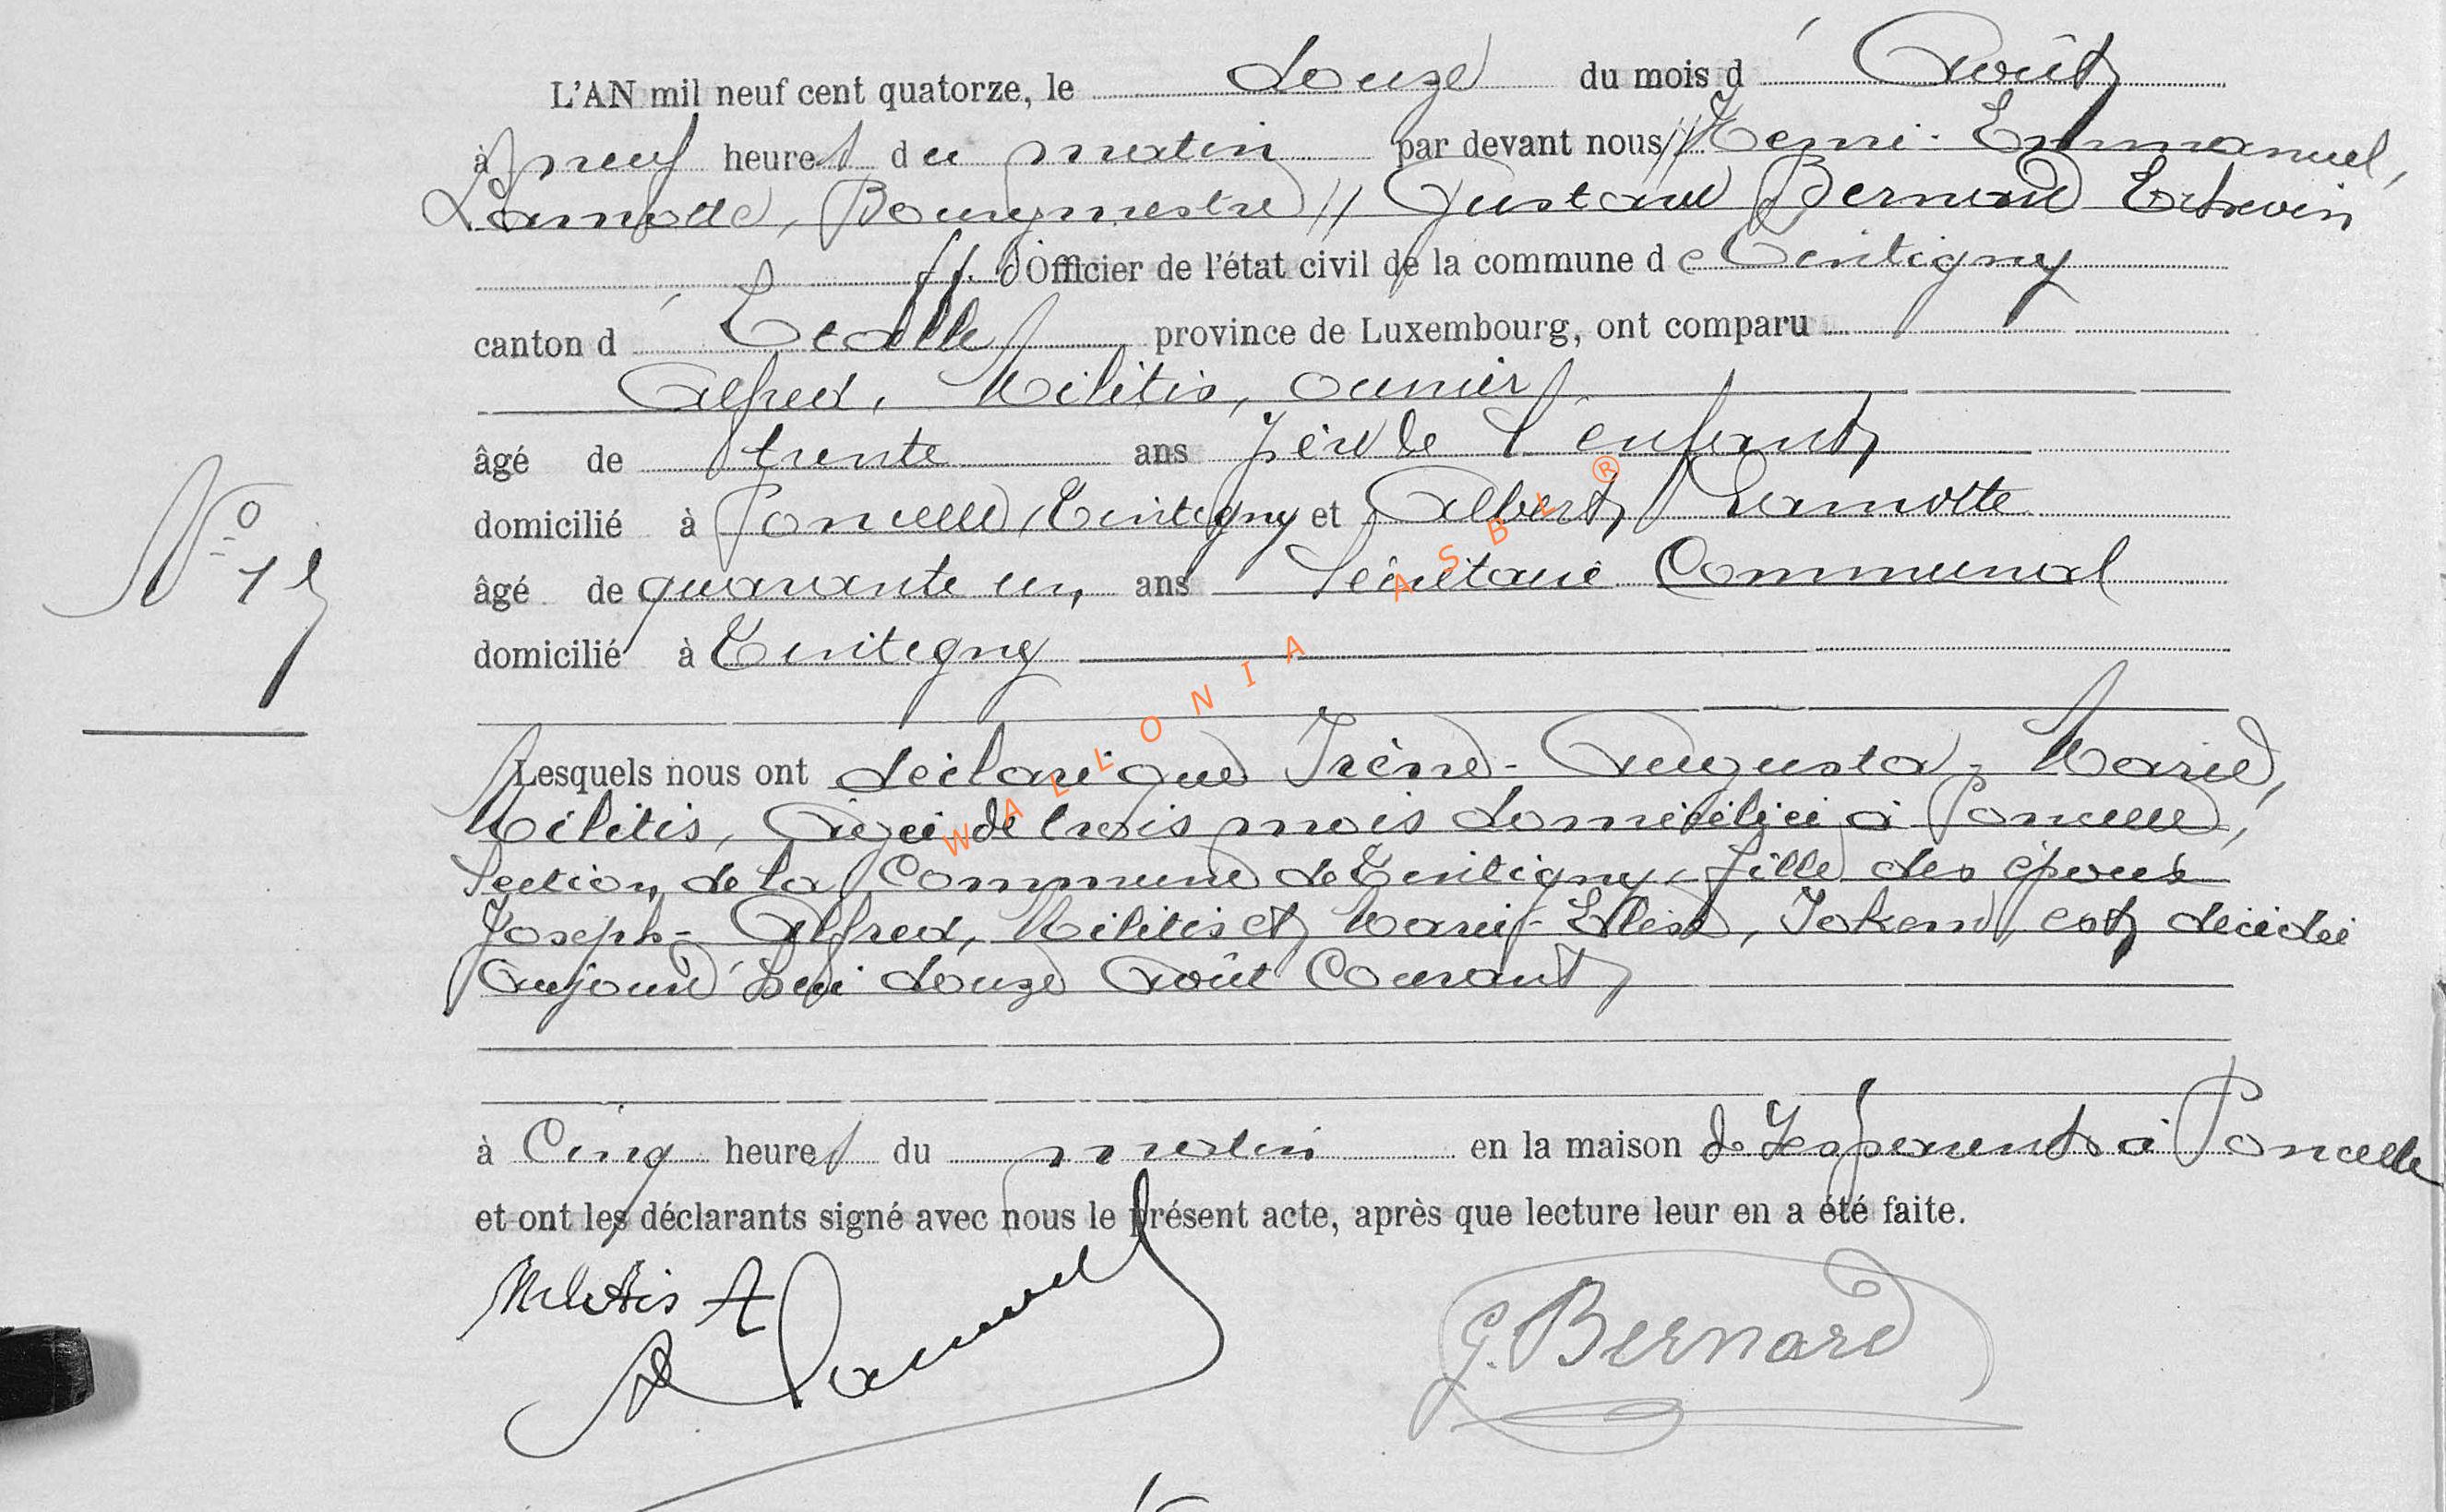 L'AN mil neuf cent quatorze, le douze du mois d'Août
à neuf heures du matin par devant nous // Henri-Emmanuel,
Lamotte, Bourgmestre // Gustave Bernard Echevin
ff. d'Officier de l'état civil de la commune de Tintigny
canton d'Etalle province de Luxembourg, ont comparu
Alfred, Militis, ouvrier,
âgé de trente ans père de l'enfant
domicilié à Poncelle, Tintigny et Albert Lamotte
âgé de quarante un ans Secrétaire Communal
domicilié à Tintigny
Lesquels nous ont déclaré que Irène-Augusta-Marie,
Militis, âgée de trois mois domiciliée à Poncelle,
Section de la Commune de Tintigny, fille des époux
Joseph-Alfred, Militis et Marie-Elise, est décédée
aujourd'hui douze Août Courant
à Cinq heures du matin en la maison de ses parents à Poncelle
et ont les déclarants signé avec nous le présent acte, après que lecture leur en a été faite.
Militis A
G. Bernard
N° 15
WALLONIA ASBL ®